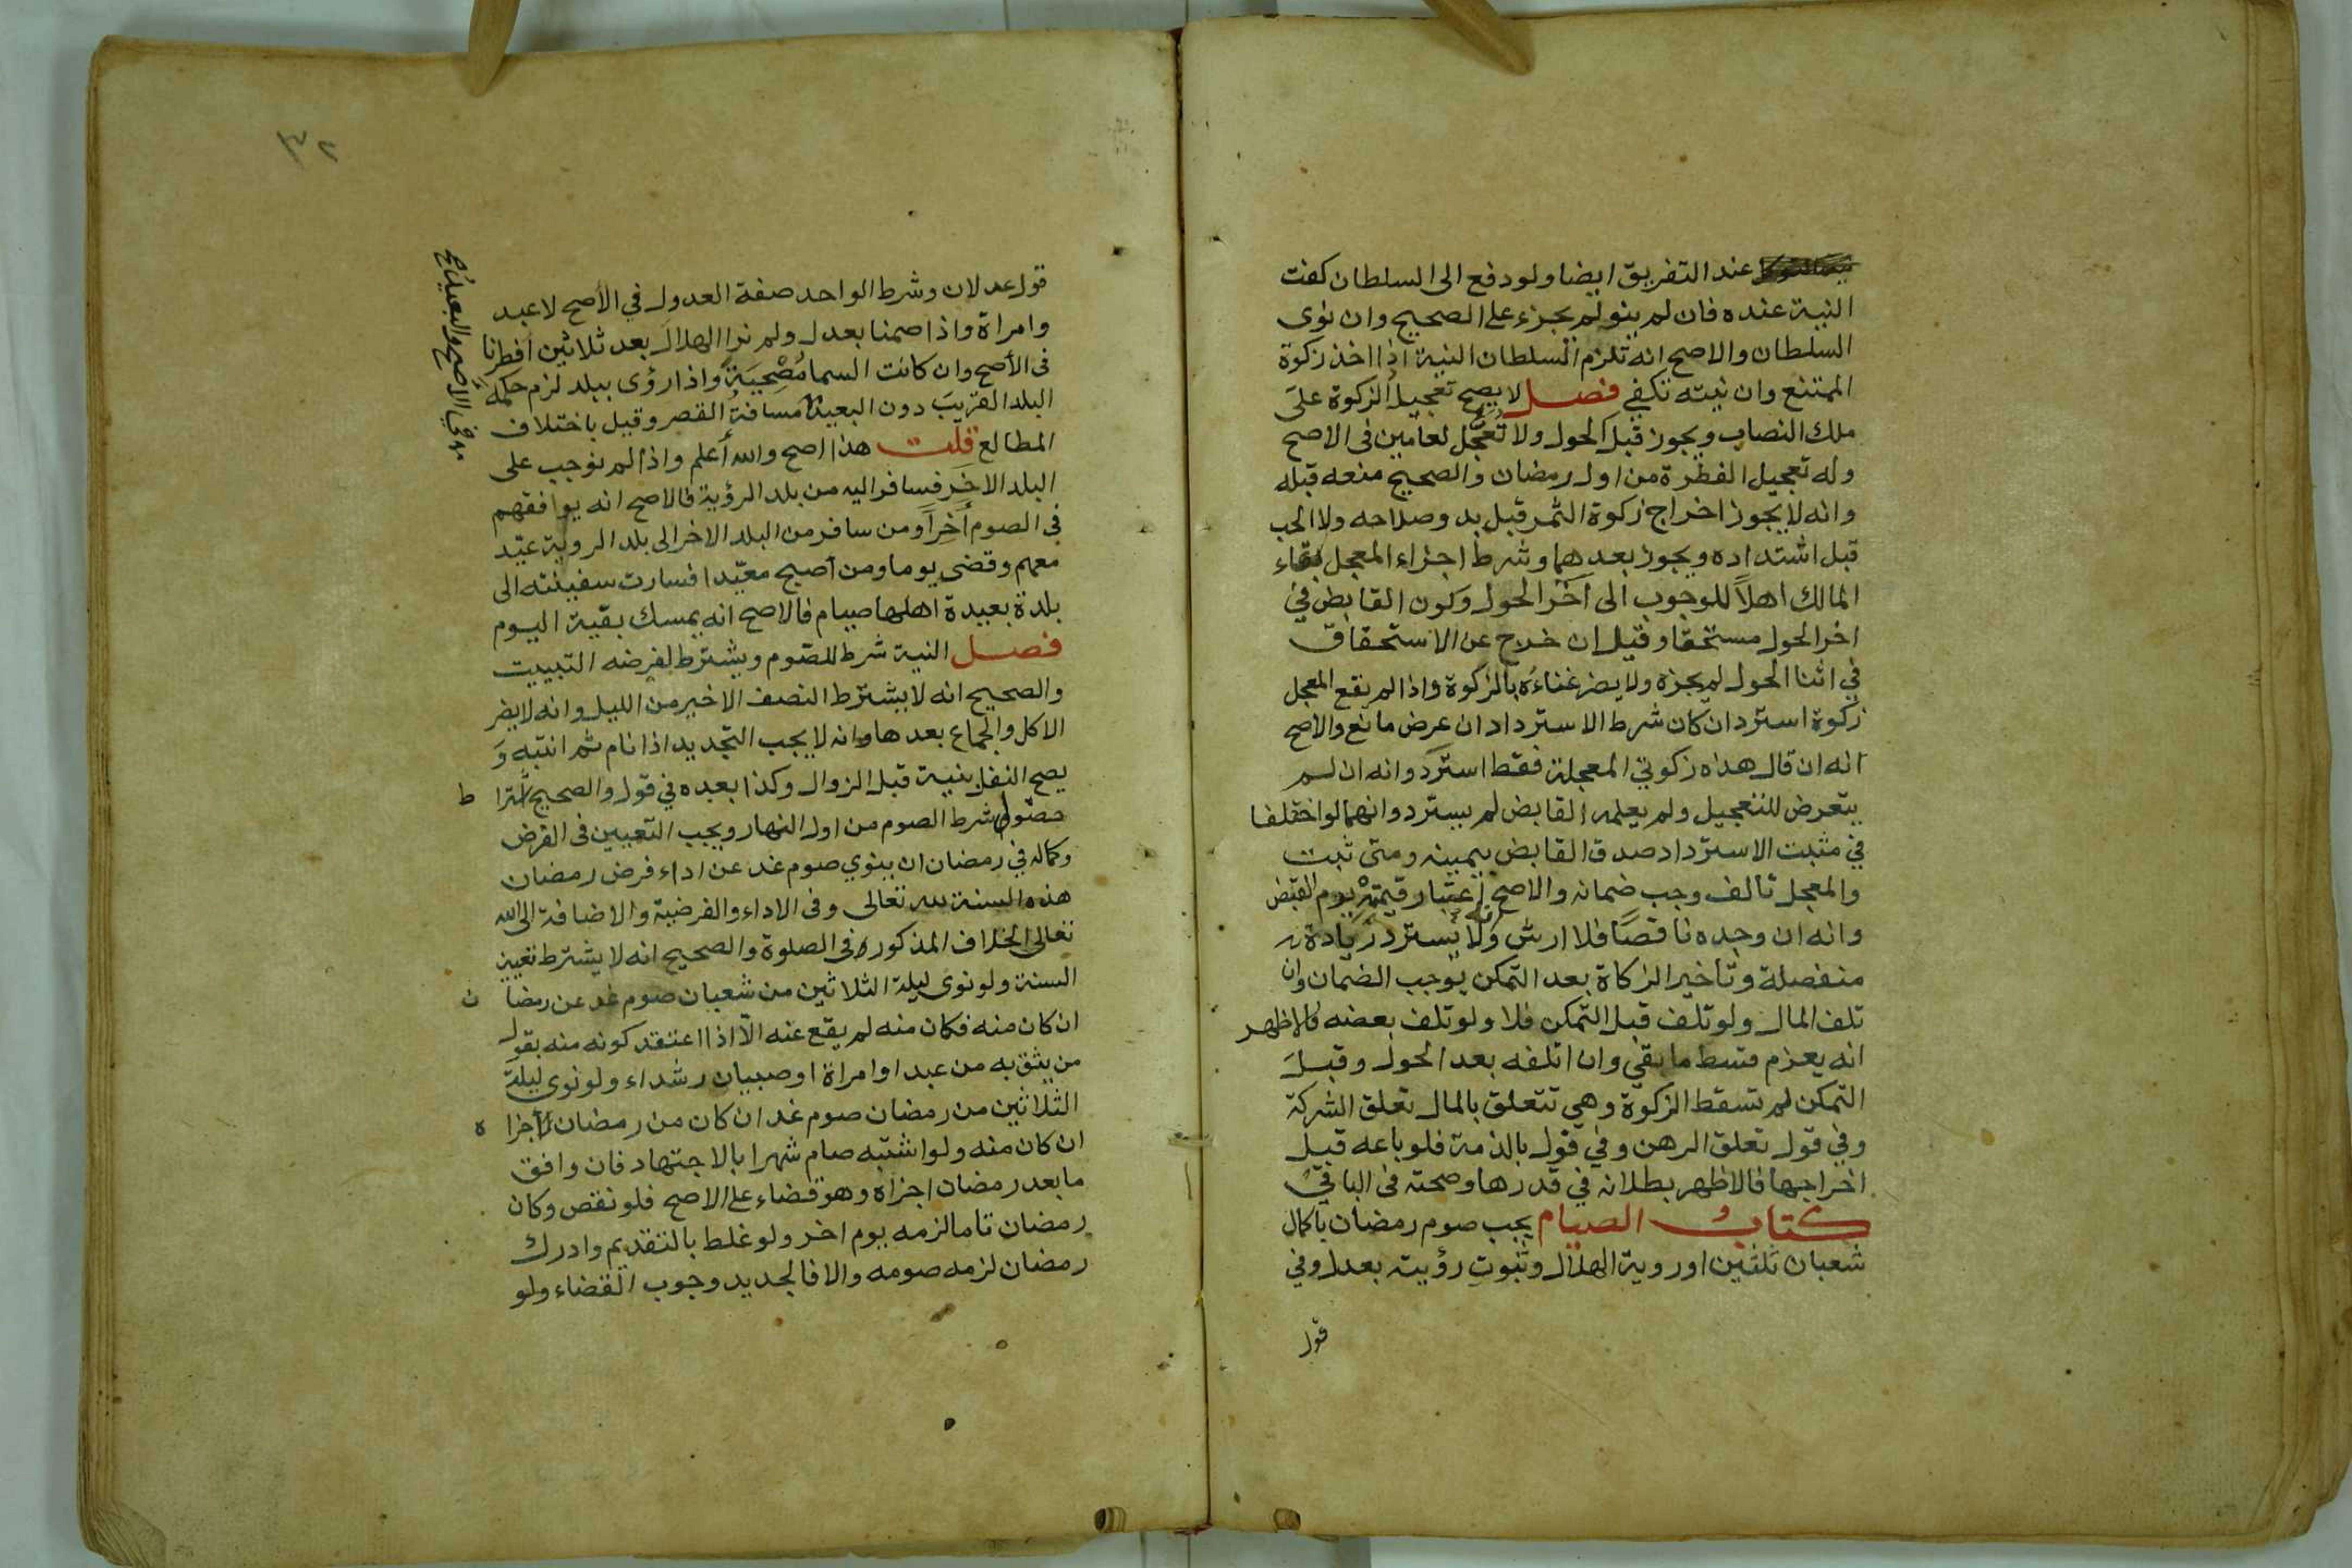 عند التفريق ايضا ولو دفع الى السلطان كفت
النية عنده فان لم ينو لم يجزء على الصحيح وان نوى
السلطان والاصح انه تلزم السلطان النية اذا اخذ زكوة
الممتنع وان نيته تكفي فصل لا يصح تعجيل الزكوة على
ملك النصاب ويجوز قبل الحول ولا تُعجَّل لعامين فى الاصح
وله تعجيل الفطرة من اول رمضان والصحيح منعه قبله
وانه لا يجوز اخراج زكوة الثمر قبل بدو صلاحه ولا الحب
قبل اشتداده ويجوز بعدهما وشرط اجزاء المعجل بقاء
المالك اهلاً للوجوب الى آخر الحول وكون القابض في
اخر الحول مستحقا وقيل ان خرج عن الاستحقاق
في اثنا الحول لم يجزه ولا يضر غناءُه بالزكوة واذا لم يقع المعجل
زكوة استرد ان كان شرط الاسترداد ان عرض مانع والاصح
انه ان قال هذه زكوتي المعجلة فقط استرد وانه ان لم
يتعرض للتعجيل ولم يعلمه القابض لم يسترد وانهما لو اختلفا
في مثبت الاسترداد صدق القابض بيمينه ومتى ثبت
والمعجل تالف وجب ضمانه والاصح اعتبار قيمته يوم القبض
وانه ان وجده ناقصًا فلا ارش وانه لا يسترد زيادة
منفصلة وتأخير الزكاة بعد التمكن يوجب الضمان وان
تلف المال ولو تلف قبل التمكن فلا ولو تلف بعضه فالاظهر
انه يعزم قسط ما بقي وان اتلفه بعد الحول وقبل
التمكن لم تسقط الزكوة وهي تتعلق بالمال تعلق الشركة
وفي قول تعلق الرهن وفي قول بالذمة فلو باعه قبل
اخراجها فالاظهر بطلانه في قدرها وصحته فى الباقي
كتاب الصيام يجب صوم رمضان باكمال
شعبان ثلثين او روية الهلال وثبوت رؤيته بعدل وفي
قول
٣٢
قول عدلان وشرط الواحد صفة العدول في الأصح لا عبد
وامراة واذا صمنا بعدل ولم نرا الهلال بعد ثلاثين افطرنا
فى الأصح وان كانت السما مُصْحِيَةً واذا رؤى ببلد لزم حكمه
البلد القريب دون البعيد مسافة القصر وقيل باختلاف
المطالع قلت هذا اصح والله أعلم واذا لم نوجب على
البلد الاخر فسافر اليه من بلد الرؤية فالاصح انه يوافقهم
فى الصوم أخِراً ومن سافر من البلد الاخر الى بلد الروية عيّد
معهم وقضى يوما ومن أصبح معيّدا فسارت سفينته الى
بلدة بعيدة اهلها صيام فالاصح انه يمسك بقية اليوم
فصل النية شرط للصوم ويشترط لفرضه التبييت
والصحيح انه لا يشترط النصف الاخير من الليل وانه لا يضر
الاكل والجماع بعدها وانه لا يجب التجديد اذا نام ثم انتبه وَ
يصح النفل بنية قبل الزوال وكذا بعده في قول والصحيح اشترا ط
حصول شرط الصوم من اول النهار ويجب التعيين فى الفرض
وكماله في رمضان ان ينوي صوم غد عن اداء فرض رمضان
هذه السنة لله تعالى وفى الاداء والفرضية والاضافة الى الله
تعالى الخلاف المذكور فى الصلوة والصحيح انه لا يشترط تعيين
السنة ولو نوى ليلة الثلاثين من شعبان صوم غد عن رمضا ن
ان كان منه فكان منه لم يقع عنه الّا اذا اعتقد كونه منه بقول
من يثق به من عبد او امراة او صبيان رشداء ولو نوى ليلة
الثلاثين من رمضان صوم غد ان كان من رمضان أجزا ه
ان كان منه ولو اشتبه صام شهرا بالاجتهاد فان وافق
ما بعد رمضان اجزاه وهو قضاء على الاصح فلو نقص وكان
رمضان تاما لزمه يوم اخر ولو غلط بالتقديم وادرك
رمضان لزمه صومه والا فالجديد وجوب القضاء ولو
في الاصح والبعيد